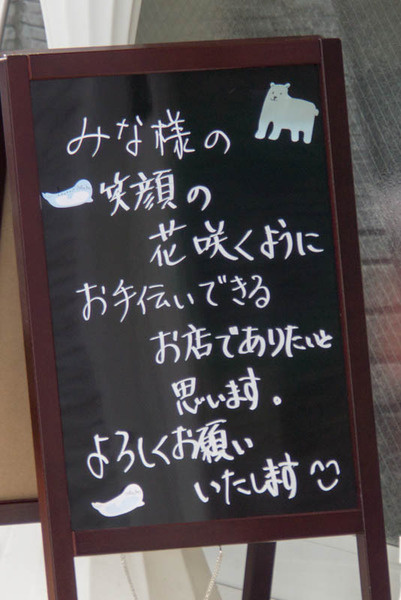 みな様の
笑顔の
花咲くように
お手伝いできる
お店でありたいと
思います。
よろしくお願い
いたします